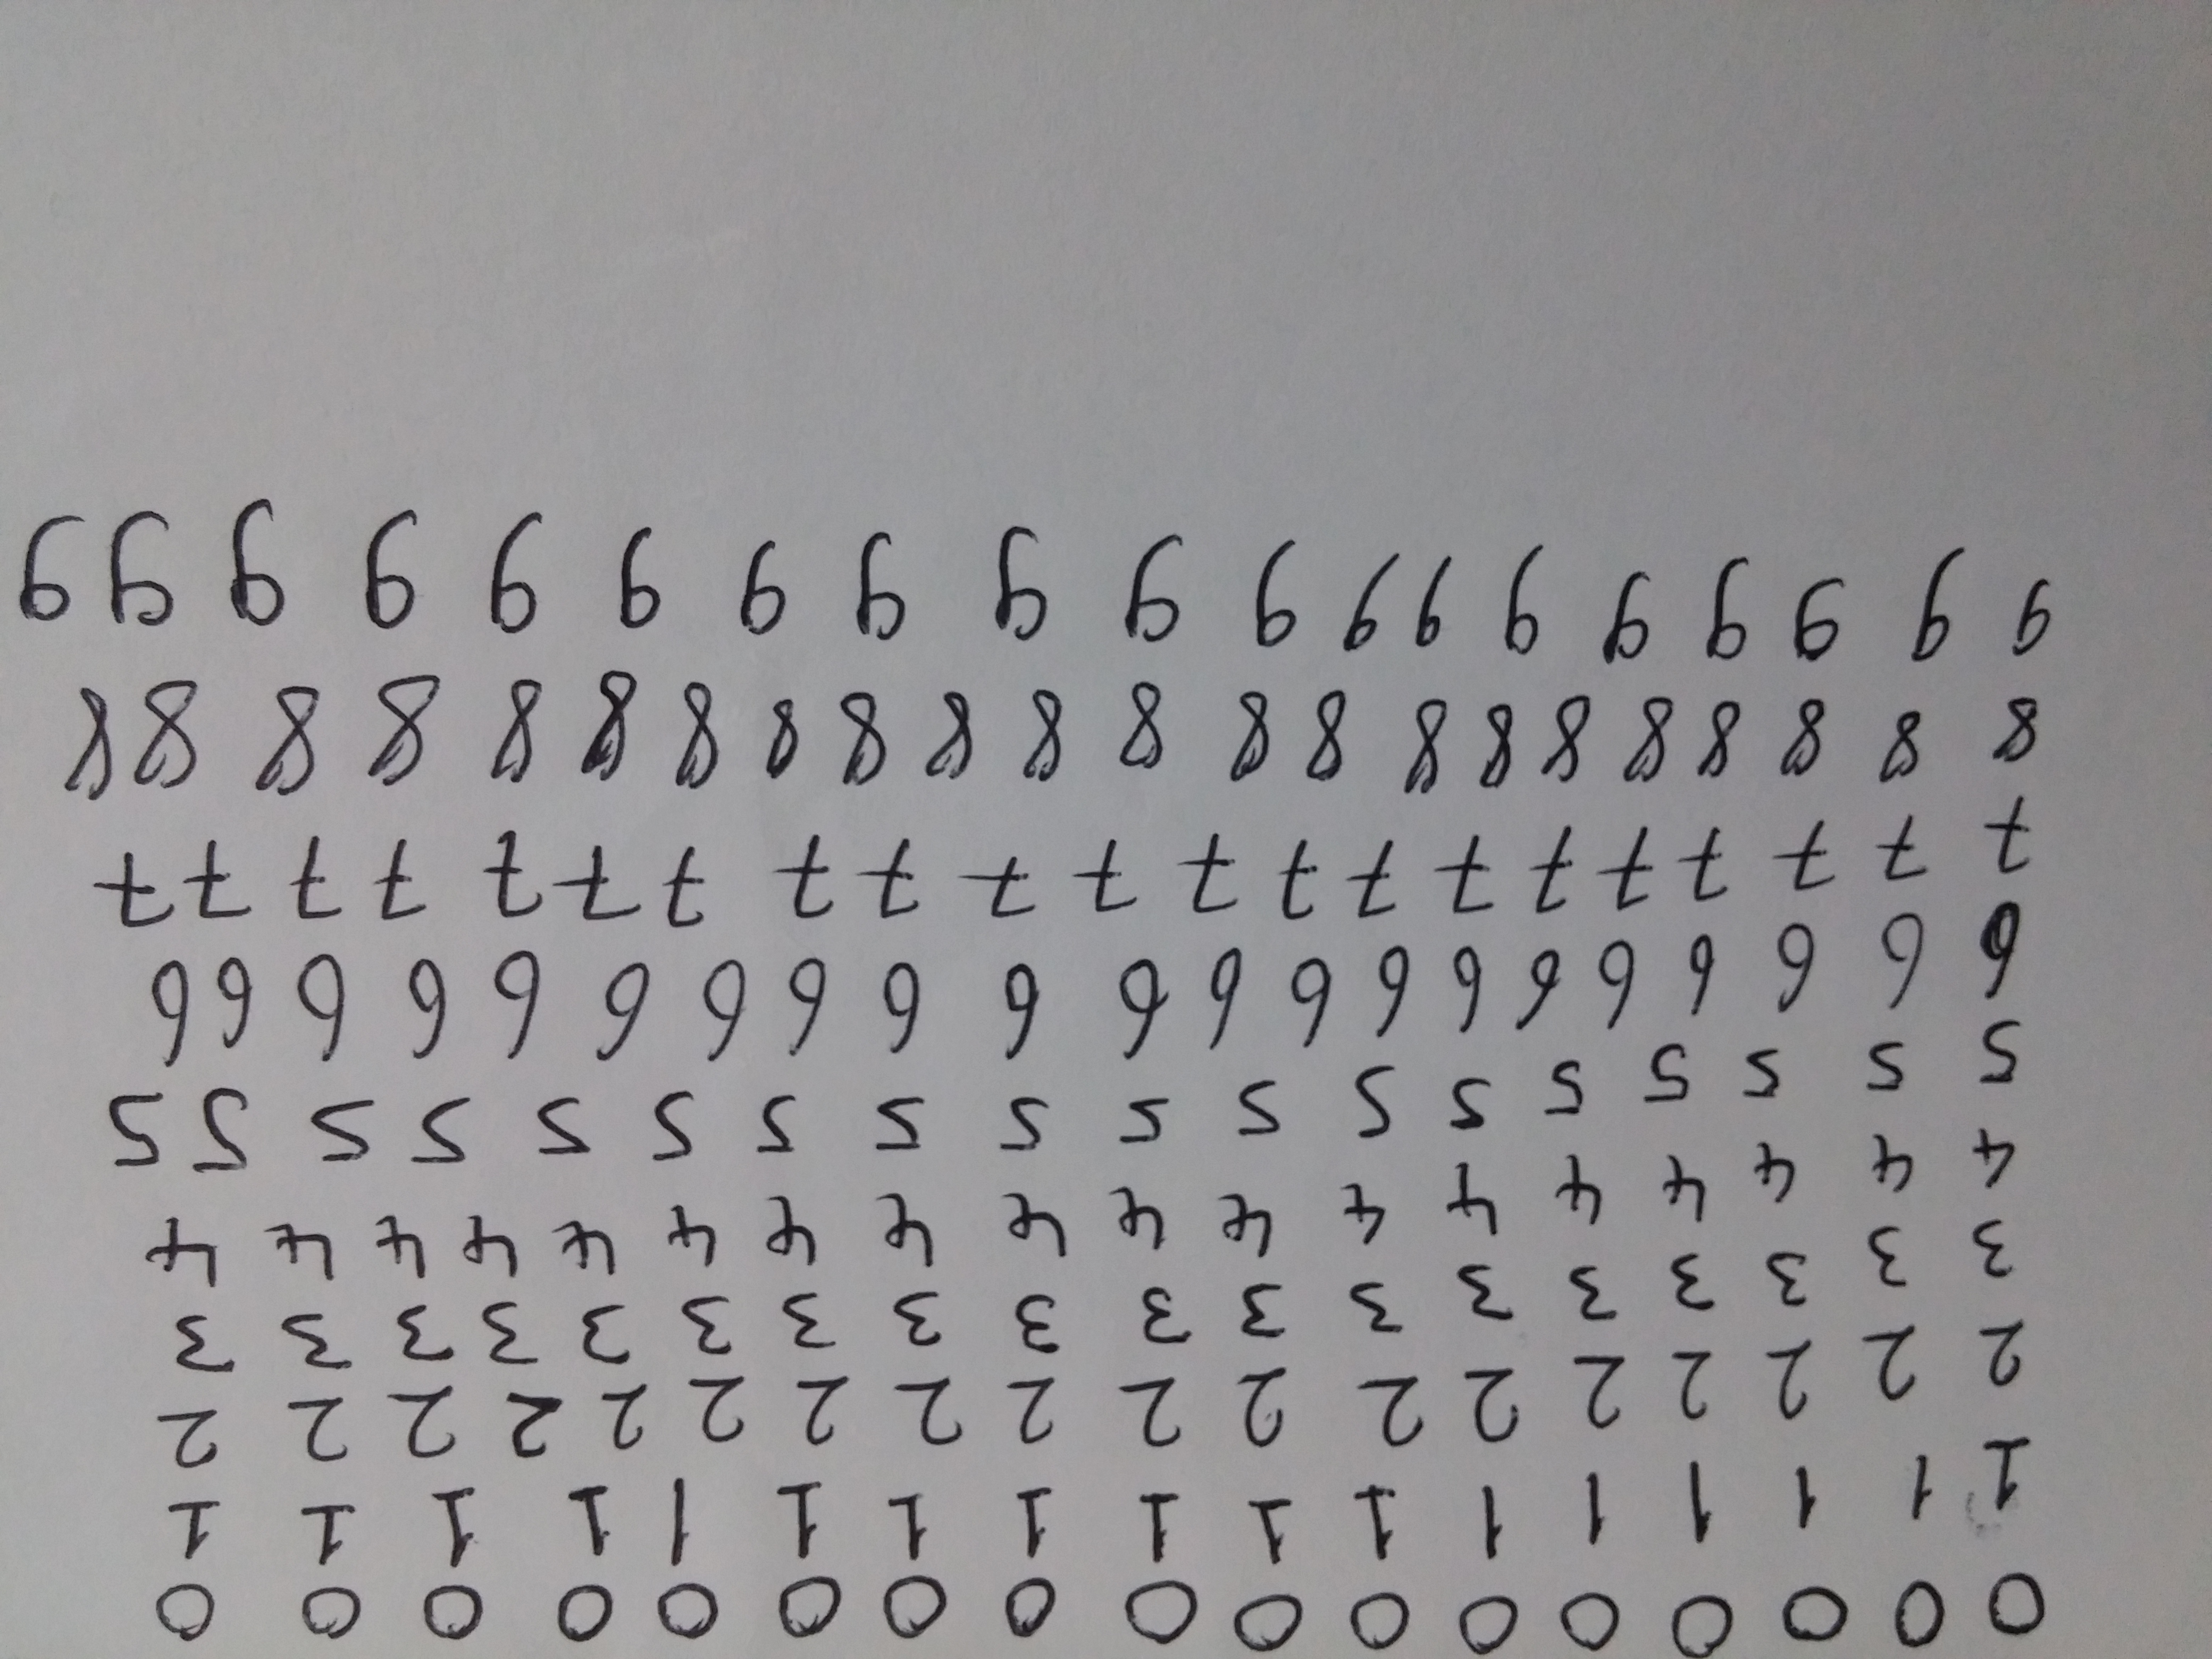 0 0 0 0 0 0 0 0 0 0 0 0 0 0 0 0 0
1 1 1 1 1 1 1 1 1 1 1 1 1 1 1 1 1
2 2 2 2 2 2 2 2 2 2 2 2 2 2 2 2 2 2
3 3 3 3 3 3 3 3 3 3 3 3 3 3 3 3 3 3
4 4 4 4 4 4 4 4 4 4 4 4 4 4 4 4 4 4
5 5 5 5 5 5 5 5 5 5 5 5 5 5 5 5 5 5
6 6 6 6 6 6 6 6 6 6 6 6 6 6 6 6 6 6 6 6 6
7 7 7 7 7 7 7 7 7 7 7 7 7 7 7 7 7 7 7 7 7
8 8 8 8 8 8 8 8 8 8 8 8 8 8 8 8 8 8 8 8 8 8
9 9 9 9 9 9 9 9 9 9 9 9 9 9 9 9 9 9 9